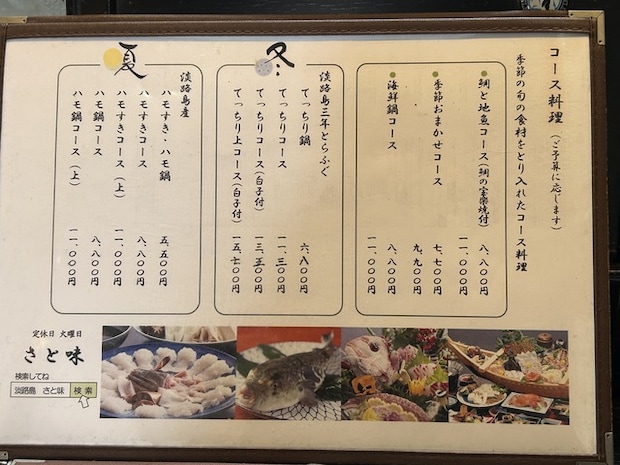 コース料理(ご予算に応じます)
季節の旬の食材をとり入れたコース料理
鯛と地魚コース(鯛の宝楽焼付)
八、八〇〇円
一一、〇〇〇円
季節おまかせコース
七、七〇〇円
九、九〇〇円
海鮮鍋コース
八、八〇〇円
一一、〇〇〇円
冬
淡路島三年とらふぐ
てっちり鍋
六、八〇〇円
てっちりコース
一一、三〇〇円
てっちりコース(白子付)
一三、五〇〇円
てっちり上コース(白子付)
一五、七〇〇円
夏
淡路島産
ハモすき・ハモ鍋
五、五〇〇円
ハモすきコース
八、八〇〇円
ハモすきコース(上)
一一、〇〇〇円
ハモ鍋コース
八、八〇〇円
ハモ鍋コース(上)
一一、〇〇〇円
定休日 火曜日
さと味
検索してね
淡路島 さと味 検索